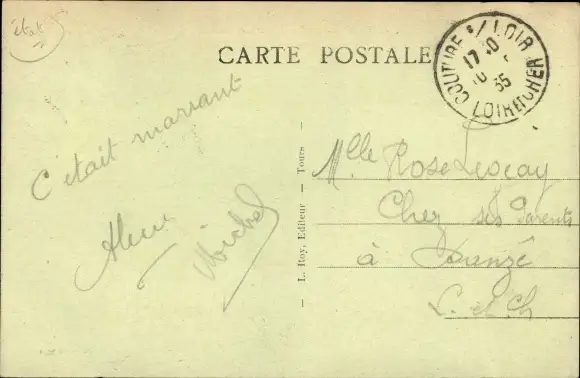 état
CARTE POSTALE
COUTURE S/ LOIR
17 10
10
35
LOIR ET CHER
C'était marrant
Michel
L. Roy, Editeur — Tours
Mlle Rose
Chez ses Parents
à
L. et Ch